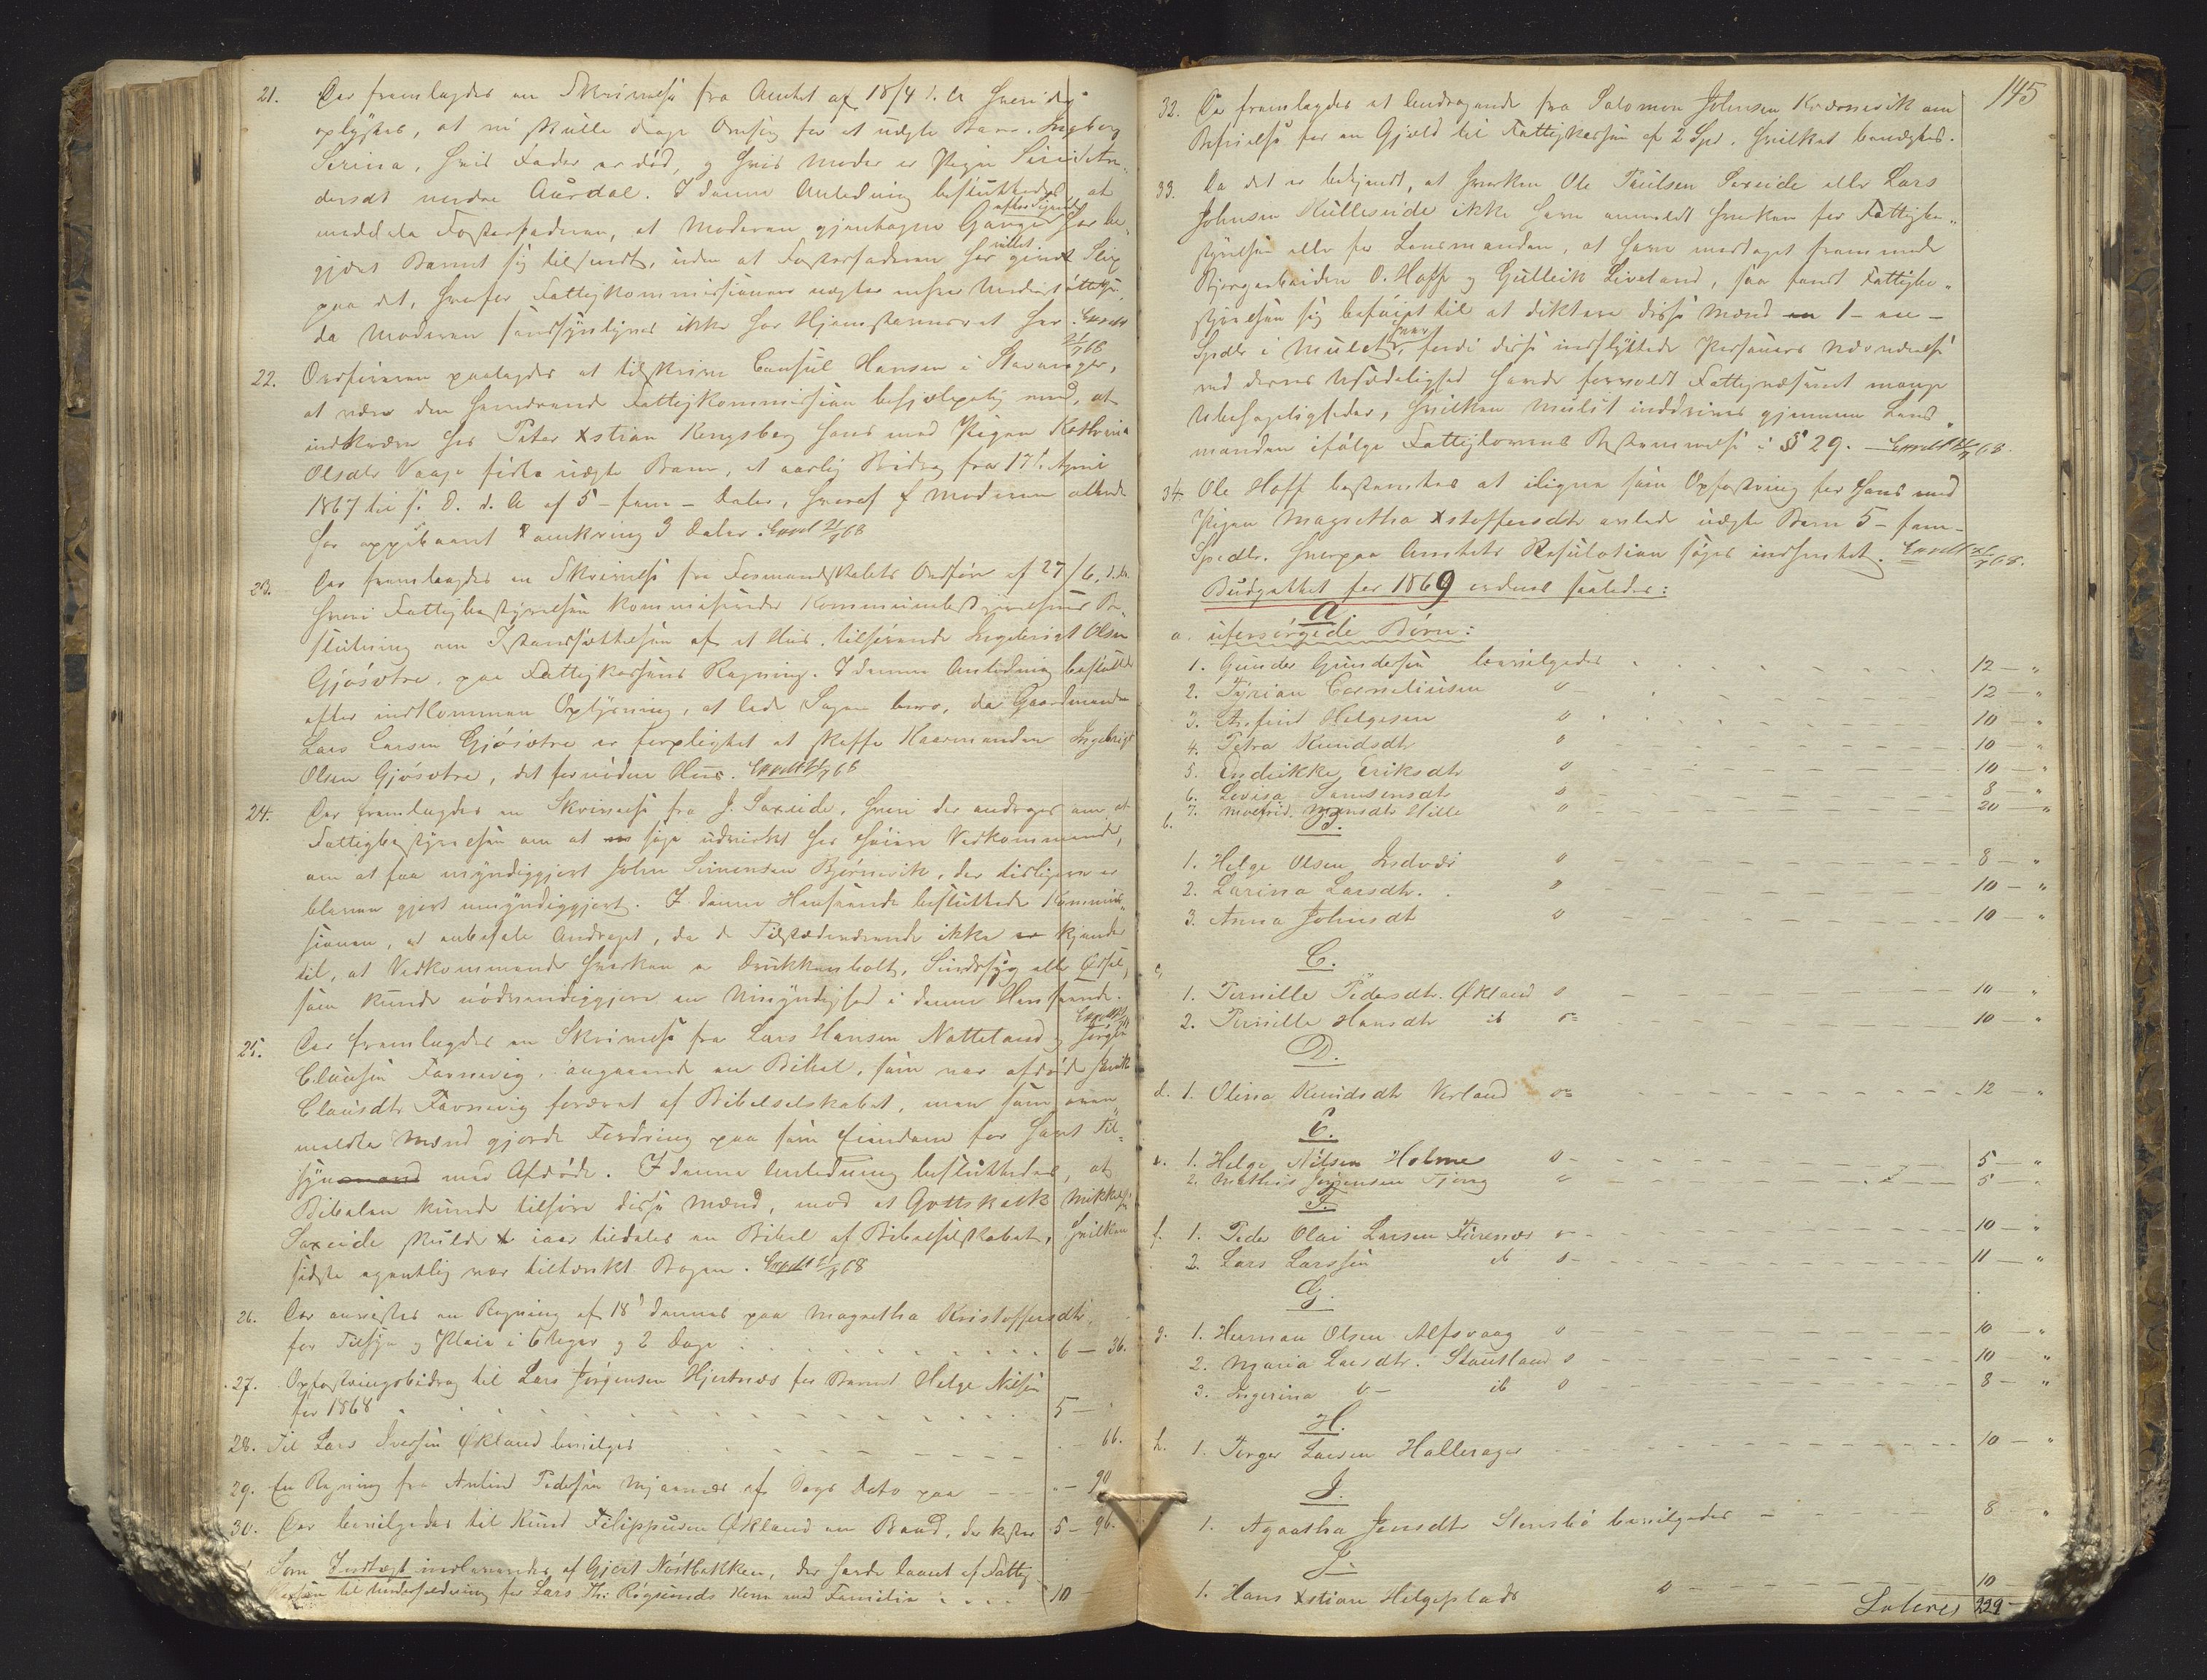 21. Der fremlagdes en Skrivelse fra Amtet af 18/4 d. A hvori det
oplystes, at vi skulle drage Omsorg for et uægte Barn Ingeborg
Serina, hvis Fader er död, og hvis Moder er Pigen Siri An„
dersdt nordre Aårdal. I denne Anledning besluttedes at
meddele Fosterfaderen, at Moderen gjentagne Gange har be„
gjært Barnet sig tilsendt, uden at Fosterfaderen har villet givet Slip
paa det, hvorfor Fattigkommissionen nægter enhver Understöttelse,
da Moderen sandsynligvis ikke har Hjemstavnsret her. Expedt
21/7 68
22. Ordföreren paalagdes at tilskrive Consul Hansen i Stavanger,
at være den herværende Fattigkommission behjælpelig med, at
indkræve hos Peter Xstian Kongsberg hans med Pigen Kathrina
Olsdtr Vaage födte uægte Barn, et aarlig Bidrag fra 17de April
1867 til s. D. d. A af 5 - fem - Daler, hvoraf Moderen allerede
har oppebaaret omkring 3 Daler. Expd 21/7 68
23. Der fremlagdes en Skrivelse fra Formandskabets Ordförer af 27/6 d. A.
hvori Fattigbestyrelsen kommuniseredes Kommunebestyrelsens Be„
slutning om Istandsættelsen af et Hus, tilhörende Ingebrigt Olsen
Gjösætre, paa Fattigkassens Regning. I denne Anledning besluttedes
efter indkommen Oplysning, at lade Sagen bero, da Gaardmanden
Lars Larsen Gjösætre er forpligtet at skaffe Kaarmanden Ingebrigt
Olsen Gjösætre, det fornödne Hus. Expedt 21/7 68
24. Der fremlagdes en Skrivelse fra J. Saxeide, hvori der androges om at
Fattigbestyrelsen om at söge udvirket hos höiere Vedkommende,
om at faa myndiggjort John Simensen Björnevik, der tidligere er
bleven gjort umyndiggjort. I denne Henseende besluttede Kommis„
sionen, at anbefale Andraget, da de Tilstedeværende ikke kjender
til, at Vedkommende hverken er Drukkenbolt, Sindssyg eller Ödsel,
som kunde nödvendiggjöre en Umyndighed i denne Henseende.
Expedt 21/7 68
25. Der fremlagdes en Skrivelse fra Lars Hansen Natteland og Jörgen
Clausen Favnevig, angaaende en Bibel, som var afdöd
Clausdtr Favnevig foræret af Bibelselskabet, men som oven„
meldte Mænd gjorde Fordring paa som Eiendom for havt Til„
syn med Afdöde. I denne Anledning besluttedes, at
Bibelen kunde tilhöre disse Mænd, mod at Gottskalk Mikkelsen
Saxeide skulde i aar tildeles en Bibel af Bibelselskabet, hvilken
sidste egentlig var tiltænkt Bogen. Expedt 21/7 68
26. Der anvistes en Regning af 18de dennes paa Magretha Kristoffersdtr
for Tilsyn og Pleie i 6 Uger og 2 Dage 6 — 36.
27. Opfostringsbidrag til Lars Jörgensen Hjertnæs for Barnet Helge Nilsen
for 1868 5 — "
28. Til Lars Iversen Økland bevilges — 66.
29. En Regning fra Anfind Pedersen Mjaanæs af Dags Dato paa " — 90
30. Der bevilgedes til Knud Filippusen Økland en Baad, der koster 5 — 96.
Som Indtægt indleveredes af Gjert Nöstbakken, der havde laant af Fattig„
kassen til Underholdning for Lars Th: Rögsunds Kone med Familie 10
145
32. Der fremlagdes et Andragende fra Salomon Johnsen Kværnevik om
Befrielse for en Gjæld til Fattigkassen af 2 Spd. hvilket benægtes.
33. Da det er bekjendt, at hverken Ole Paulsen Saxeide eller Lars
Johnsen Kulleseide ikke have anmeldt hverken for Fattigbe„
styrelsen eller for Lensmanden, at have modtaget fremmede
Bjergarbeidere O. Hoff og Gulleik Liveland, saa fandt Fattigbe„
styrelsen sig beföiet til at diktere disse Mænd 1 - en -
Spdlr i Mulct hver, fordi disse indflyttede Personers Nærværelse
ved deres Usædelighed havde forvoldt Fattigvæsenet mange
Ubehageligheder, hvilken Mulct inddrives gjennem Lens„
manden ifölge Fattiglovens Bestemmelse i § 29. — Expedt 21/7 68.
34. Ole Hoff bestemtes at iligne som Opfostring for hans med
Pigen Magretha Xstoffersdtr avlede uægte Barn 5 - fem -
Specdlr. hvorpaa Amtets Resolution söges indhentet. Expedt 21/7 68.
Budgettet for 1869 ordnes saaledes:
A
a. uforsörgede Börn:
1. Gunder Gundersen bevilgedes 12 — "
2. Tyrian Corneliusen " 12 — "
3. Arfind Helgesen " 10 — "
4. Petra Knudsdtr " 10 — "
5. Endrikke Eriksdtr " 10 — "
6. Lovisa Samsonsdt " 8 — "
7. Molfrid Mognsdtr Hille " 20 — "
b. B.
1. Helge Olsen Indvær " 8 — "
2. Larina Larsdtr. " 10 — "
3. Anna Johnsdt " 10 — "
c, C.
1. Pernille Pedersdtr. Økland " 10 — "
2. Pernille Hansdtr ib " 10 — "
D.
d. 1. Olina Knudsdtr Urland " 12 — "
E.
e. 1. Helge Nilsen Holme " 5 — "
2. Mathis Jörgensen Tjong " 5 — "
F.
f. 1. Peder Olai Larsen Furenæs " 10 — "
2. Lars Larssen ib " 11 — "
G.
g. 1. Herman Olsen Alfsvaag " 10 — "
2. Maria Larsdtr. Stautland " 10 — "
3. Ingerina " ib " 8 — "
H.
h. 1. Torger Larsen Hallerager 10 — "
I.
1. Agaatha Jensdtr Stensbö bevilgedes 8 — "
J.
1. Hans Xstian Helgeplads " 10 —
Lateres 229 —